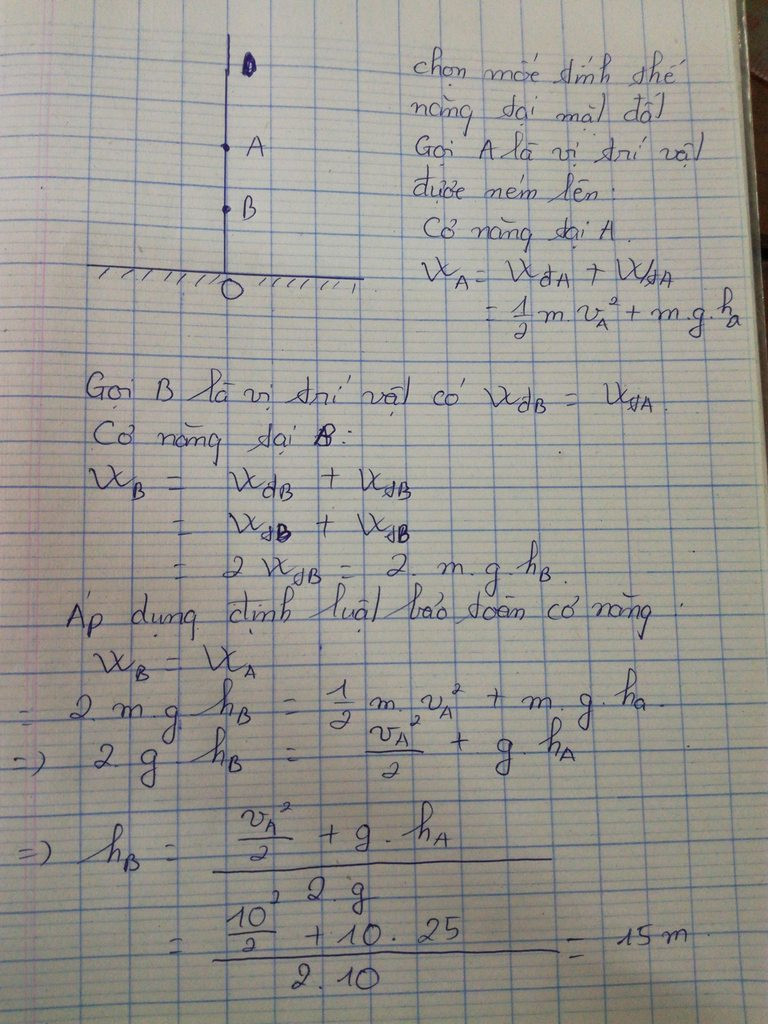 D
A
B
O
chọn mốc tính thế
năng tại mặt đất
Gọi A là vị trí vật
được ném lên:
Cơ năng tại A.
W_A = W_đA + W_tA
= 1/2 m.v_A² + m.g.h_a
Gọi B là vị trí vật có W_đB = W_tA.
Cơ năng tại B:
W_B = W_đB + W_tB
= W_tB + W_tB
= 2 W_tB = 2. m.g.h_B.
Áp dụng định luật bảo toàn cơ năng.
W_B = W_A
= 2. m.g h_B = 1/2 m. v_A² + m.g.h_a.
=> 2 g h_B = v_A²/2 + g.h_A
=> h_B = (v_A²/2 + g.h_A)/(2.g)
= (10²/2 + 10.25)/(2.10) = 15m